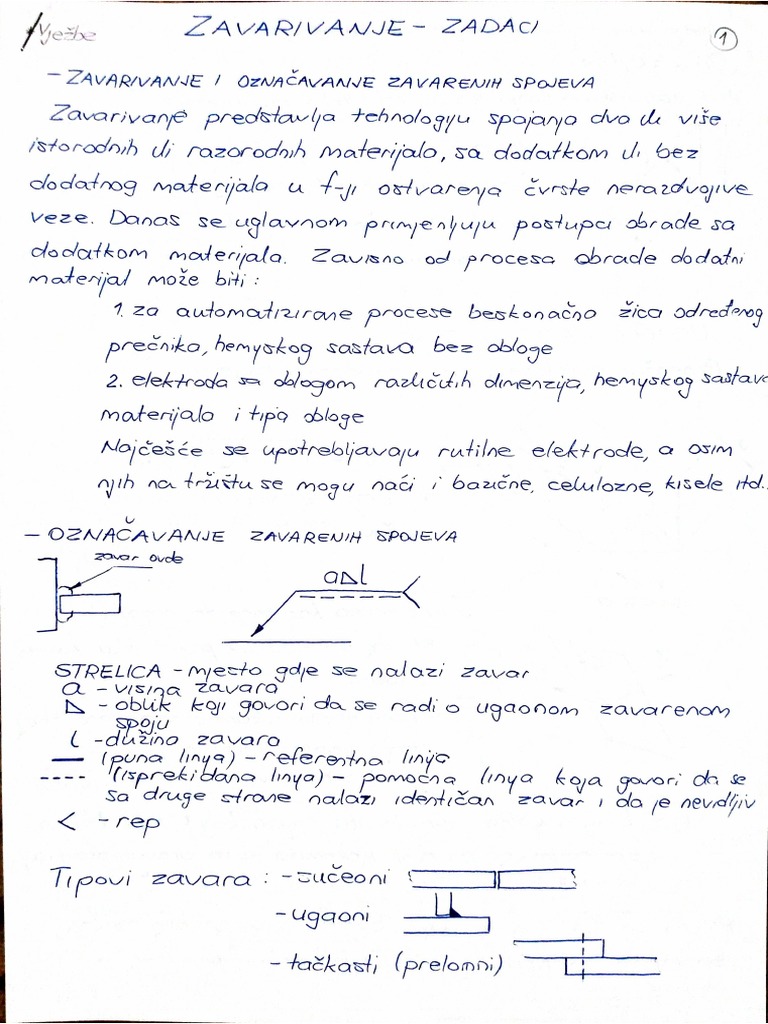 Vježbe
ZAVARIVANJE - ZADACI
1
- ZAVARIVANJE I OZNAČAVANJE ZAVARENIH SPOJEVA
Zavarivanje predstavlja tehnologiju spajanja dva ili više
istorodnih ili razorodnih materijala, sa dodatkom ili bez
dodatnog materijala u f-ji ostvarenja čvrste nerazdvojive
veze. Danas se uglavnom primjenjuju postupci obrade sa
dodatkom materijala. Zavisno od procesa obrade dodatni
materijal može biti:
1. za automatizirane procese beskonačno žica određenog
prečnika, hemijskog sastava bez obloge
2. elektroda sa oblogom različitih dimenzija, hemijskog sastava
materijala i tipa obloge
Najčešće se upotrebljavaju rutilne elektrode, a osim
njih na tržištu se mogu naći i bazične, celulozne, kisele itd..
- OZNAČAVANJE ZAVARENIH SPOJEVA
zavar ovde
a l
STRELICA - mjesto gdje se nalazi zavar
a - visina zavara
- oblik koji govori da se radi o ugaonom zavarenom
spoju
l - dužina zavara
(puna linija) - referentna linija
(isprekidana linija) - pomoćna linija koja govori da se
sa druge strane nalazi identičan zavar i da je nevidljiv
< - rep
Tipovi zavara: - sučeoni
- ugaoni
- tačkasti (prelomni)